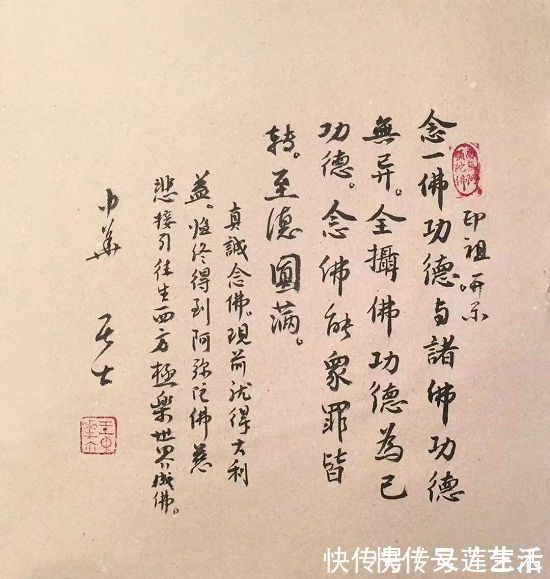 印祖开示
念一佛功德与諸佛功德
無异。全攝佛功德為己
功德。念佛能衆罪皆
轉。至德圓滿。
真誠念佛。現前就得大利
益。临终得到阿弥陀佛慈
悲接引往生西方極樂世界成佛。
中華
居士
快传